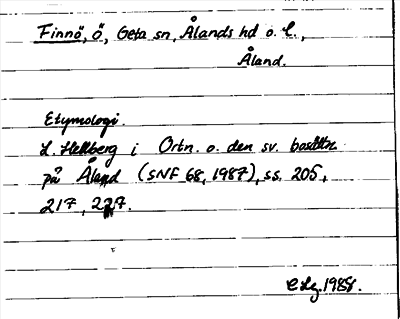 Finnö, ö, Geta sn, Ålands hd o. l.,
Åland.
Etymologi.
L. Hellberg i Ortn. o. den sv. bosättn.
på Åland (SNF 68, 1987), ss. 205,
217, 227.
1988.